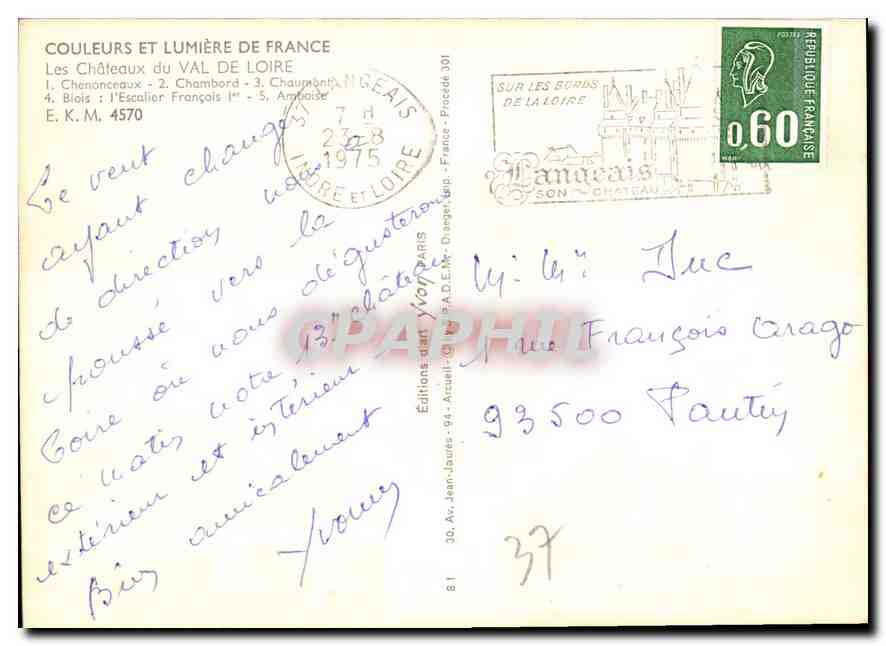 COULEURS ET LUMIÈRE DE FRANCE
Les Châteaux du VAL DE LOIRE
1. Chenonceaux - 2. Chambord - 3. Chaumont
4. Blois : l'Escalier François Ier - 5. Amboise
E. K. M. 4570
37 LANGEAIS
7 H
23-8
1975
INDRE ET LOIRE
SUR LES BORDS
DE LA LOIRE
Langeais
SON CHATEAU
POSTES
REPUBLIQUE FRANÇAISE
0,60
Le vent
ayant changé
de direction nous a
poussé vers la
Loire où nous dégusterons
ce matin notre 13e château
extérieur et intérieur
Bien amicalement
Yvonne
30, Av. Jean-Jaurès - 94 - Arcueil - Draeger, Imp. - France - Procédé 301
Editions d'art yvon PARIS
8 1
M. Me Duc
1 rue François Arago
93500 Pantin
37
CPAPHIL